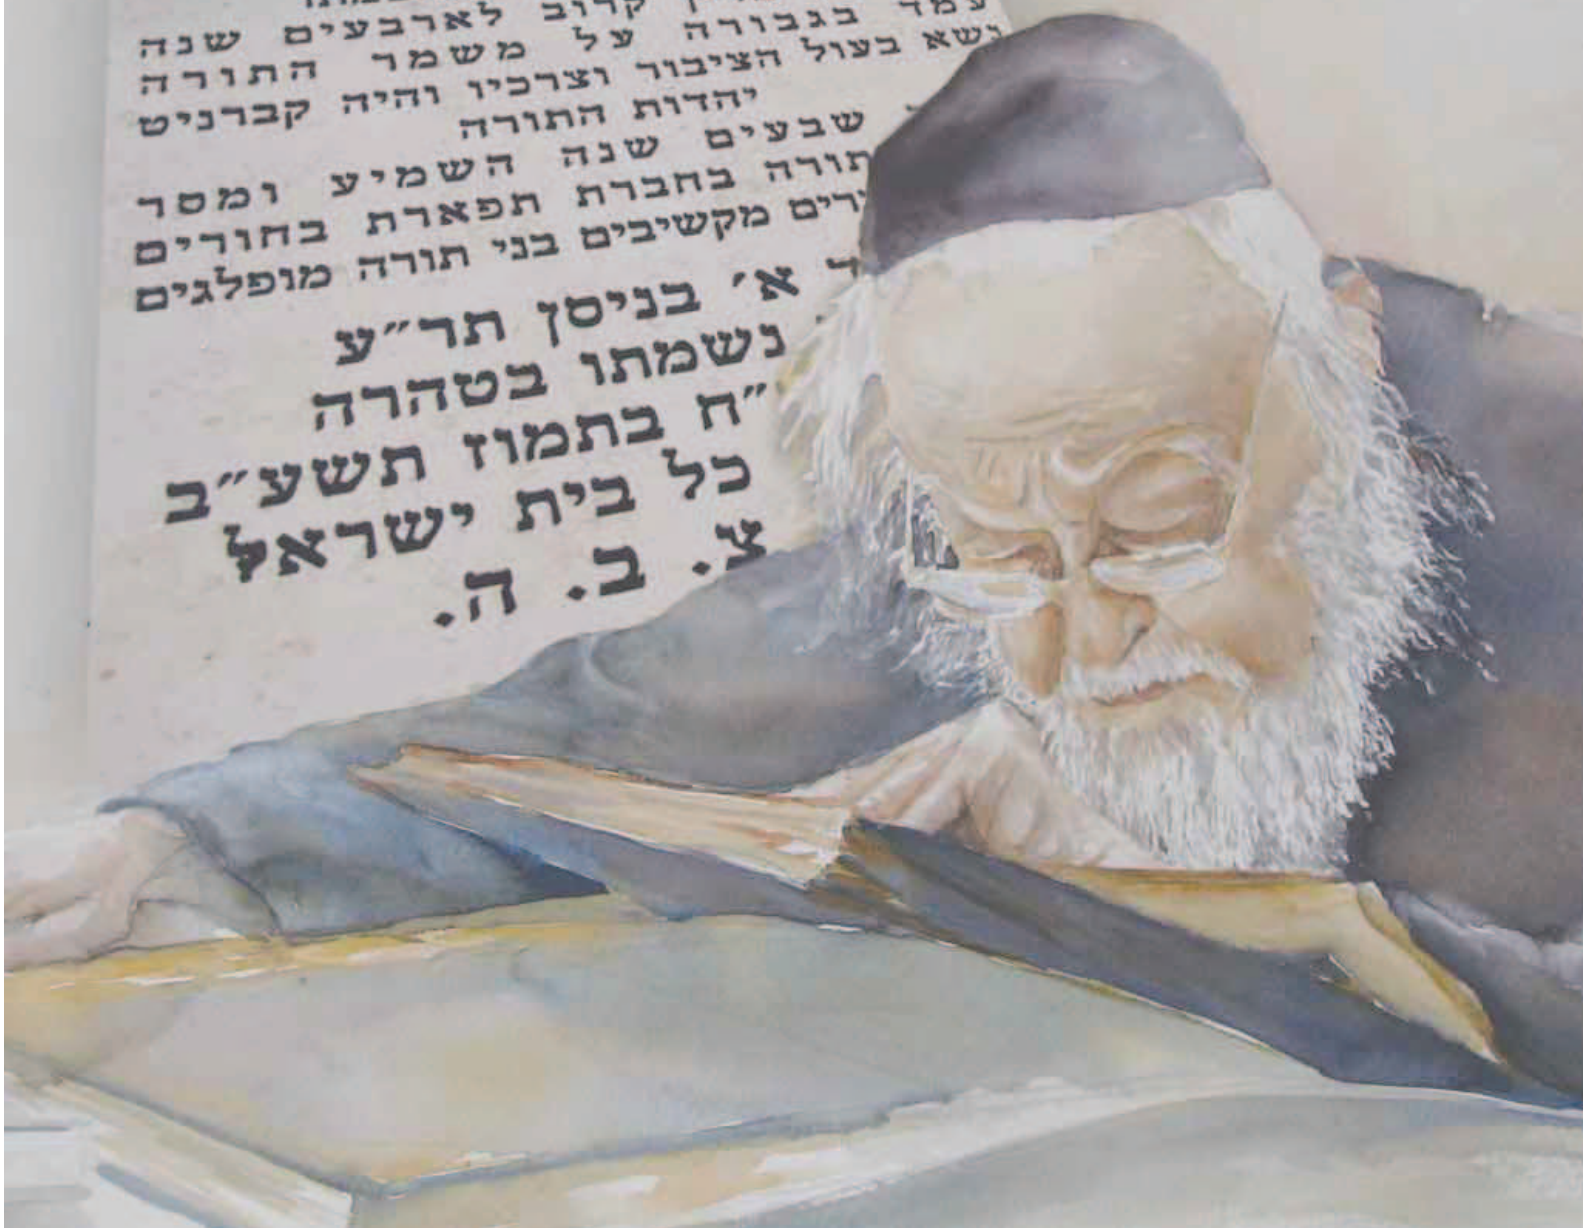 קרוב לארבעים שנה
עמד בגבורה על משמר התורה
נשא בעול הציבור וצרכיו והיה קברניט
יהדות התורה
שבעים שנה השמיע ומסר
תורה בחברת תפארת בחורים
מקשיבים בני תורה מופלגים
א׳ בניסן תר״ע
נשמתו בטהרה
בתמוז תשע״ב
כל בית ישראל
צ. ב. ה.